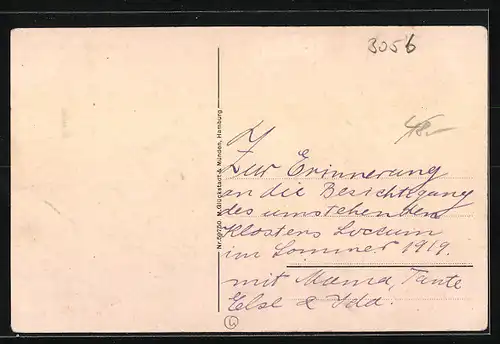 3056
48.-
Zur Erinnerung
an die Besichtigung
des umstehenden
Klosters Loccum
im Sommer 1919.
mit Mama, Tante
Else & Ida.
Nr. 59750 M. Glückstadt & Münden, Hamburg